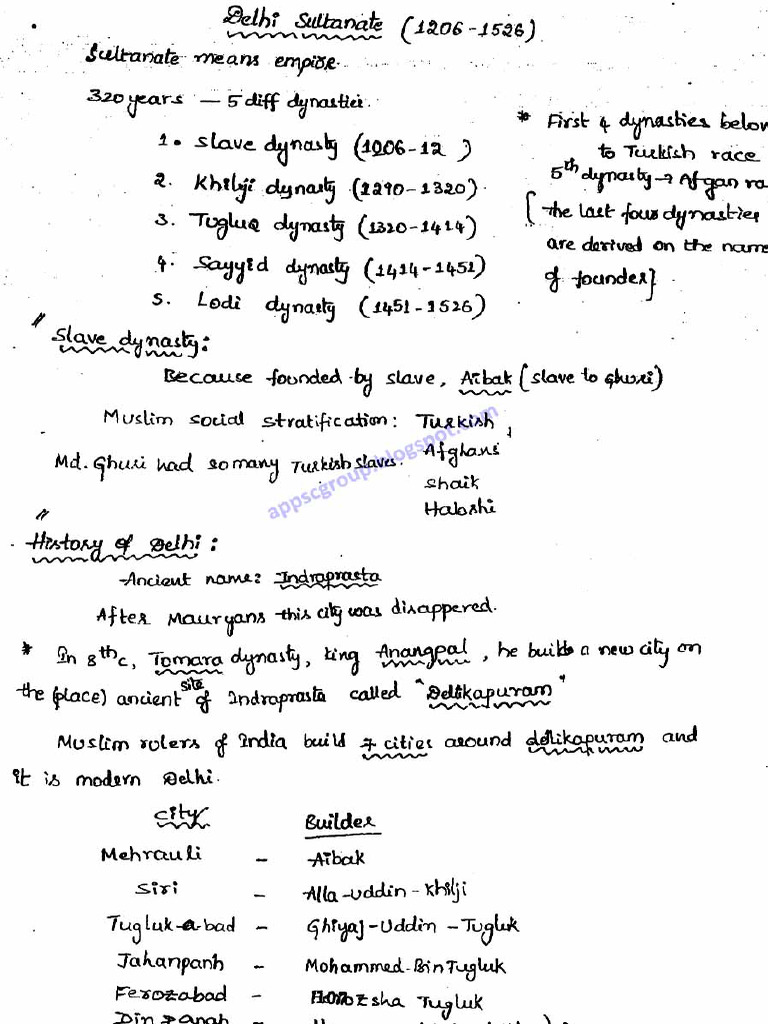 Delhi Sultanate (1206-1526)
Sultanate means empire.
320 years - 5 diff dynasties.
1. Slave dynasty (1006-12 )
2. Khilji dynasty (1290-1320)
3. Tugluq dynasty (1320-1414)
4. Sayyid dynasty (1414-1451)
5. Lodi dynasty (1451-1526)
* First 4 dynasties below
to Turkish race
5th dynasty → Afgan ra
[the last four dynasties
are derived on the name
of founder]
Slave dynasty:
Because founded by slave, Aibak (slave to Ghuri)
Muslim social stratification: Turkish,
Afghans
Md. Ghuri had so many Turkish slaves.
Shaik
Habshi
appscgroup.blogspot.com
History of Delhi:
Ancient name: Indraprasta
After Mauryans this city was disappered.
* In 8th c, Tomara dynasty, king Anangpal, he builds a new city on
the (place) ancient site of Indraprasta called "Dellikapuram"
Muslim rulers of India build 7 cities around dellikapuram and
it is modern Delhi.
City Builder
Mehrauli - Aibak
Siri - Alla-uddin-Khilji
Tugluk-a-bad - Ghiyaj-Uddin-Tugluk
Jahanpanh - Mohammed-Bin Tugluk
Ferozabad - sha Tugluk
Din panah